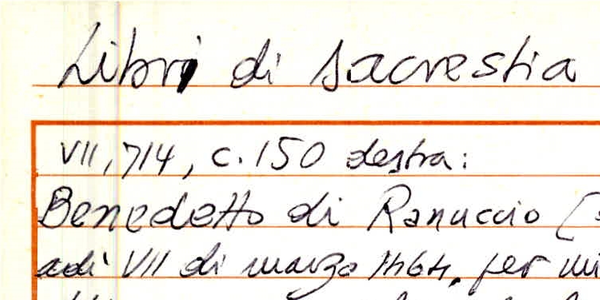 Libri di sacrestia
VII, 714, c. 150 destra:
Benedetto di Ranuccio [
adì VII di marzo 1464, per mi